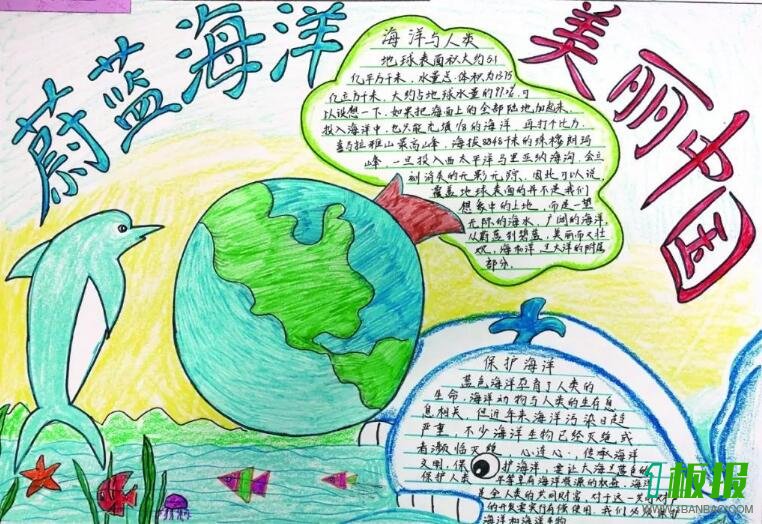 蔚蓝海洋
美丽中国
海洋与人类
地球表面积大约5.1
亿平方千米,水量总体积为13.75
亿立方千米,大约占地球水量的97.2%,可
以设想一下,如果把海面上的全部陆地加起来,
投入海洋中,也只能充填1/8的海洋,再打个比方,
喜马拉雅山最高山峰,海拔8848千米的珠穆朗玛
峰,一旦投入西太平洋马里亚纳海沟,会立
刻消失的无影无踪。因此可以说,
覆盖地球表面的并不是我们
想象中的土地,而是一望
无际的海水,广阔的海洋,
从蔚蓝到碧蓝,美丽而又壮
观,海和洋是大洋的附属
部分。
保护海洋
蓝色海洋孕育了人类的
生命,海洋动物与人类的生存息
息相关,但近年来海洋污染日趋
严重,不少海洋生物已经灭绝或
者濒临灭绝 心连心,传承海洋
文明,保护海洋,要让大海
保护人类 不管享有海洋资源的权益,海洋
是全人类的共同财富,对于这一
的开发要实行有偿使用,我们必须保护
海洋和海洋生物
板报
WWW.1BANBAO.COM